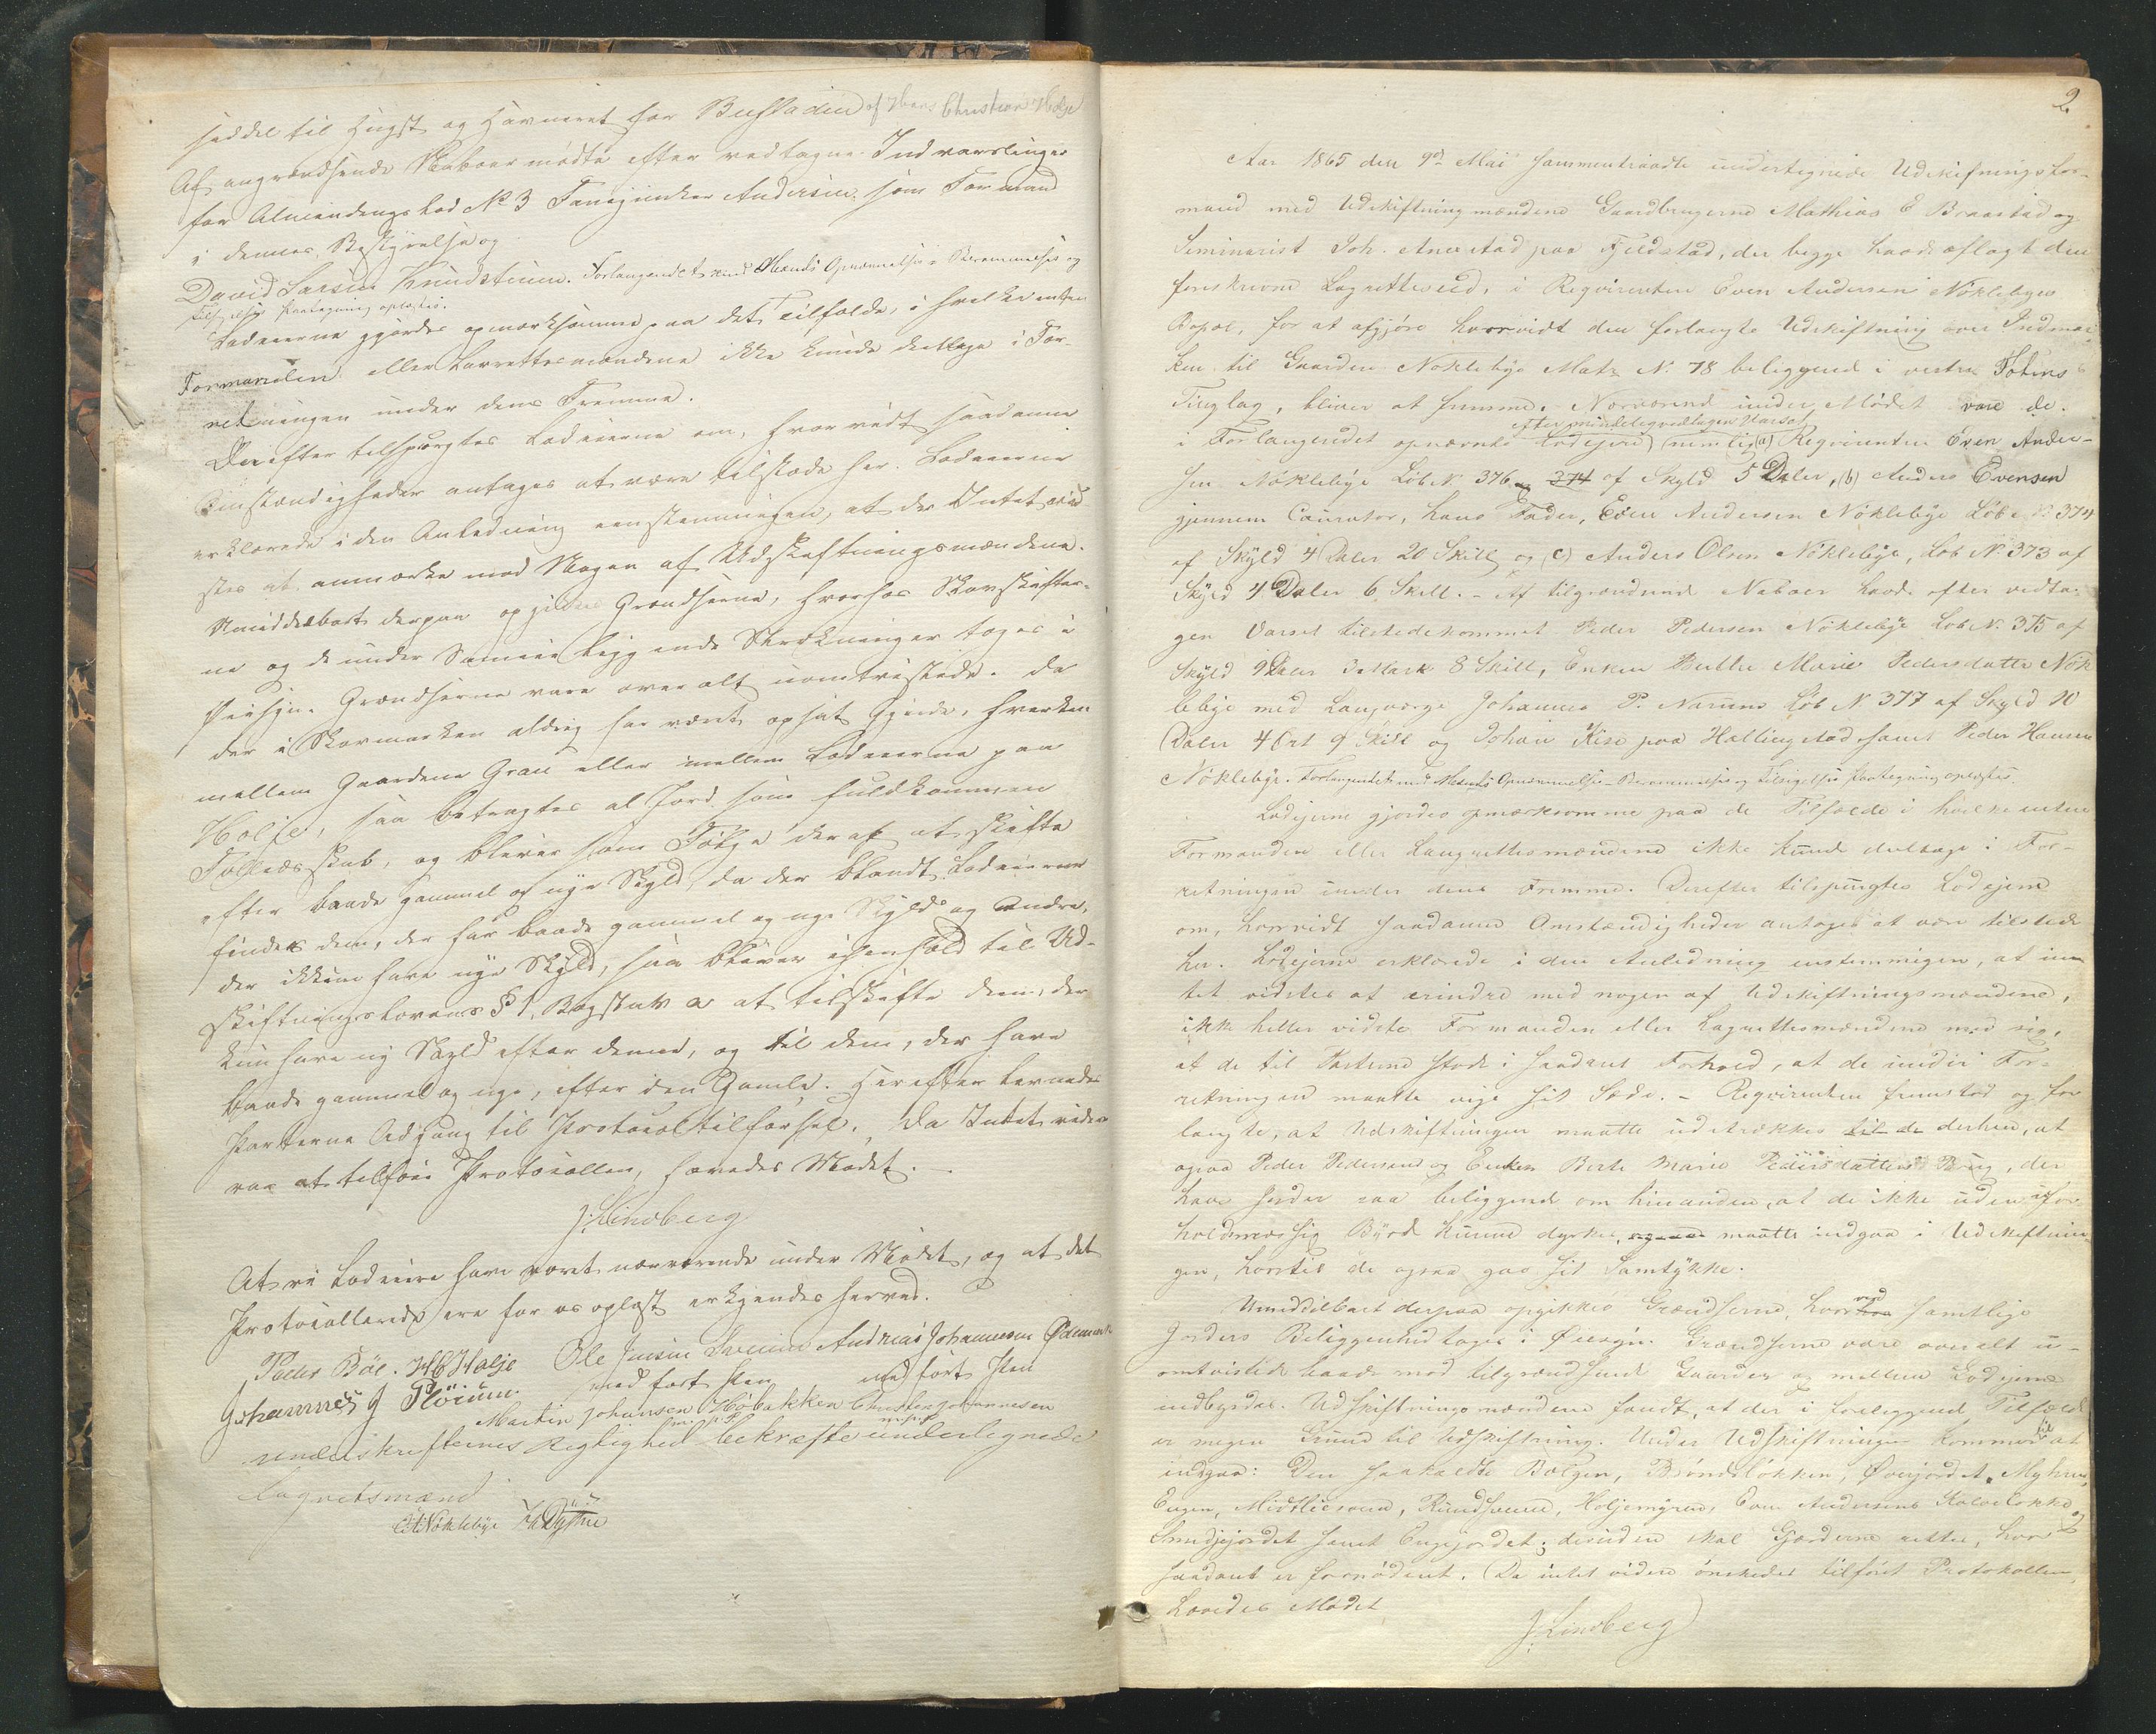 seddel til Hugst og Havneret for Bustadien af Hans Christian Holje
Af angrændsende Naboer mødte efter vedtagne Indvarslinger
for Almendings Lod No 3 Fanejunker Andersen som Formand
i dennes Bestyrelse og
David Larsen Knudstuen. Forlangendet med Mænds Opnævnelses- Berammelses og
Tilsigelses Paategning oplæstes.
Lodeierne gjordes opmærksomme paa det Tilfælde, i hvilke enten
Formanden eller Lavrettesmændene ikke kunde deeltage i For-
retningen under dens Fremme.
Derefter tilspurgtes Lodeierne om, hvorvidt saadanne
Omstændigheder antages at være tilstæde her. Lodeierne
erklærede i den Anledning eenstemmigen, at der Intet vid-
stes at anmærke mod Nogen af Udskiftningsmændene.
Umiddelbart derpaa opgikkes Grændserne, hvorhos Skovskifter-
ne og de under Sameie liggende Strækninger toges i
Øiesyn. Grændserne vare overalt uomtvistede. Da
der i Skovmarken aldrig har været opsat Gjærde, hverken
mellem Gaardene Grau eller mellem Lodeierne paa
Holje, saa betragtes al Jord som fuldkommen
Fællesskab, og bliver som Følge deraf at skifte
efter baade gammel og nye Skyld, da der blandt Lodeierne
findes dem, der har baade gammel og nye Skyld og Andre,
der ikkun have nye Skyld, saa bliver i Henhold til Ud-
skiftningslovens § 1, Bogstav a at tilskifte dem, der
kun have ny Skyld efter denne, og til dem, der have
baade gammel og nye, efter den Gamle. Herefter levnedes
Parterne Adgang til Protocoltilførsel. Da Intet videre
var at tilføie Protocollen, hævedes Mødet.
J. Lindberg
At vi Lodeiere have været nærværende under Mødet, og at det
Protocollerede ere for os oplæst erkjendes herved.
Peder Böe. H C Holje Ole Jensen Andreas Johannesen Ødemark
Johannes J med ført Pen med ført Pen
Martin Johansen Høbakken Christen Johannesen
m. p. P. m. p. P.
underskrifternes Rigtighed bekræfte undertegnede
Lagretsmænd
E A Nøklebye
2
Aar 1865 den 9de Mai sammentraadte undertegnede Udskiftningsfor-
mand med Udskiftningsmændene Gaardbrugerne Mathias E Braastad og
Seminarist Joh. Anerstad paa Fjeldstad, der begge havde aflagt den
foreskrevne Lagretteseed, i Reqvirenten Even Andersen Nøklebyes
Bopæl, for at afgjøre hvorvidt den forlangte Udskiftning over Indmar-
ken til Gaarden Nøklebye Matr N. 78 beliggende i vestre Totens
Tinglag, bliver at fremme. Nærværende under Mødet vare de
efter mindelig vedtagen Varsel
i Forlangendet opnævnte Lodejere) (nemlig a) Reqvirenten Even Ander-
sen Nøklebye Løb N. 376 og 274 af Skyld 5 Daler, (b) Anders Evensen
gjennem Caurator, hans Fader, Even Andersen Nøklebye Løbe N 374
af Skyld 4 Daler 20 Skill og (c) Anders Olsen Nøklebye, Løb N. 373 af
Skyld 4 Daler 6 Skill. - Af tilgrændsende Naboer havde efter vedta-
gen Varsel tilstedekommet Peder Pedersen Nøklebye Løb N. 375 af
Skyld 9 Daler 3 Mark 8 Skill, Enken Berthe Marie Pedersdatter Nøk
lebye med Laugværge Johannes P. Narum Løb N. 377 af Skyld 10
Daler 4 Ort 9 Skill og Johan Kise paa Hallingstad samt Peder Hansen
Nøklebye. Forlangendet med Mænds Opnævnelses- Berammelses og Tilsigelses Paategning oplæstes.
Lodejerne gjordes opmærksomme paa de Tilfælde i hvilke enten
Formanden eller Laugrettesmændene ikke kunde deltage i For-
retningen under dens Fremme. Derefter tilspurgtes Lodejerne
om, hvorvidt saadanne Omstændigheder antages at være tilstede
her. Lodejerne erklærede i den Anledning enstemmigen, at in-
tet vidstes at erindre mod nogen af Udskiftningsmændene,
ikke heller vidste Formanden eller Lagrettesmændene med sig,
at de til Parterne stode i saadant Forhold, at de under For-
retningen maatte vige sit Sæde. - Reqvirenten fremstod og for
langte, at Udskiftningen maatte udstrækkes til de derhen, at
ogsaa Peder Pedersens og Enken Berte Marie Pedersdatters Brug, der
have Jorder saa beliggende om hinanden, at de ikke uden ufor-
holdsmæssig Byrde kunne dyrkes, maatte indgaa i Udskiftnin-
gen, hvortil de ogsaa gav sit Samtykke.
Umiddelbart derpaa opgikkes Grændserne, hvorved samtlige
Jorders Beliggenhed toges i Øiesyn. Grændserne vare overalt u-
omtvistede baade mod tilgrændsende Gaarder og mellem Lodejerne
indbyrdes. Udskiftningsmændene fandt, at der i foreliggende Tilfælde
er megen Grund til Udskiftning. Under Udskiftningen kommer til at
indgaa: Den saakaldte Bølgen, Brøndsløkken, Øverjordet, Myhren,
Engen, Midtlisveen, Rundsveen, Holjemyren, Even Andersens Kalveløkke og
Smedjejordet samt Engejordet; desuden skal Gjærderne rettes, hvor
saadant er fornødent. Da intet videre ønskedes tilført Protokollen,
hævedes Mødet
J. Lindberg